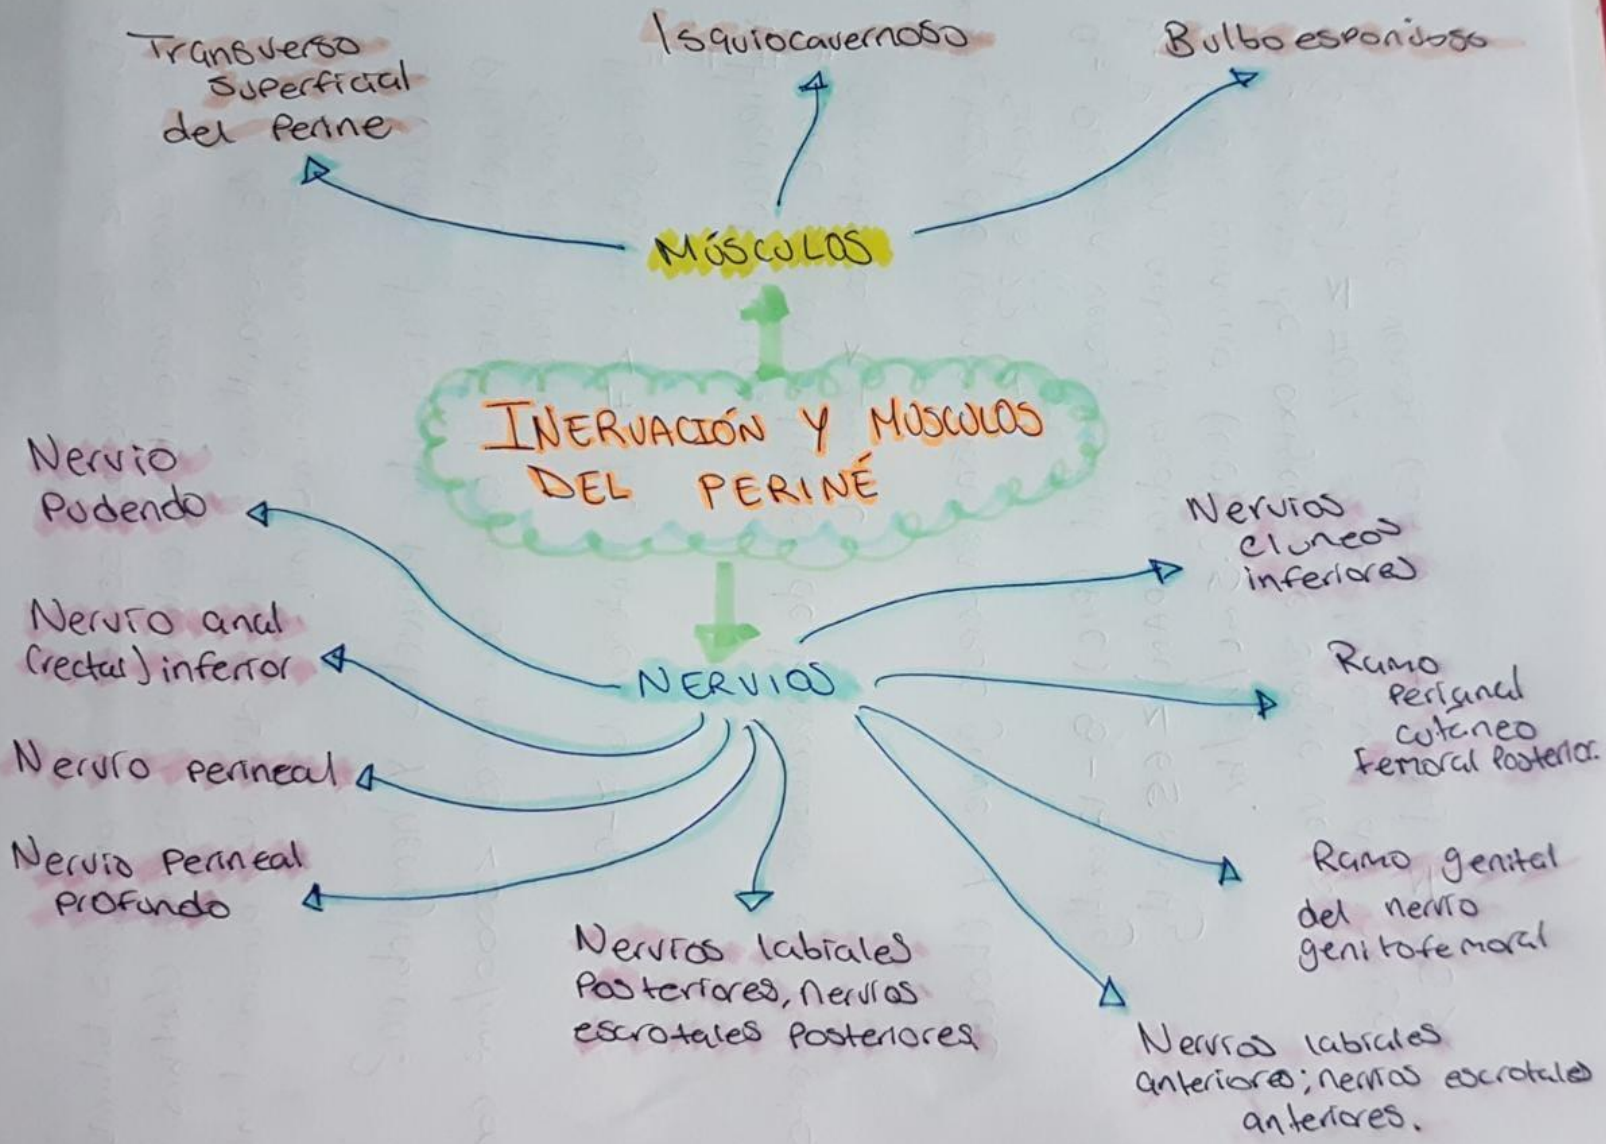 Transverso
superficial
del Perine
Isquiocavernoso
Bulboesponjoso
MÚSCULOS
INERVACIÓN Y MUSCULOS
DEL PERINÉ
NERVIOS
Nervio
Pudendo
Nervio anal
(rectal) inferior
Nervio perineal
Nervio Perineal
Profundo
Nervios labiales
Posteriores, nervios
escrotales Posteriores
Nervios
cluneos
inferiores
Ramo
perianal
cutaneo
Femoral Posterior.
Ramo genital
del nervio
genitofemoral
Nervios labiales
anteriores; nervios escrotales
anteriores.